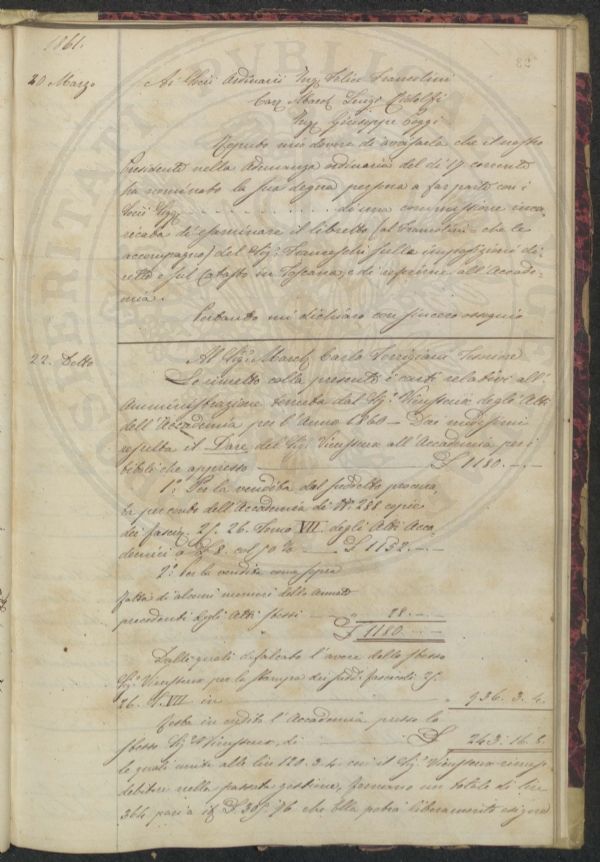 1861.
20 Marzo
Ai Socii Ordinarii Ing.e Felice Francolini
Cav. March. Luigi Ridolfi
Ing.e Giuseppe Poggi
Reputo mio dovere di avvisarla che il nostro
Presidente nella Adunanza ordinaria del dì 17 corrente
ha nominato la sua degna persona a far parte con i
Socii Sigg. . . . . . . . . . . di una commissione inca-
ricata di esaminare il libretto (al Francolini - che le
accompagno) del Sig.r Franceschi sulla imposizione di-
retta e sul Catasto in Toscana, e di riferirne all'Accade-
mia.
Restando mi dichiaro con sincero ossequio
22. Detto
Al Sig.r March. Carlo Torrigiani Tesoriere
Le rimetto colla presente i conti relativi all'
Amministrazione tenuta dal Sig.r Vieusseux degli Atti
dell'Accademia per l'Anno 1860 - Dai medesimi
resulta il Dare del Sig. Vieusseux all'Accademia per i
titoli che appresso £ 1180. -. -.
1.° Per la vendita dal suddetto procura-
ta per conto dell'Accademia di N.° 288 copie
dei fascic. 25. 26. Tomo VII. degli Atti Acca-
demici a £ 8. col 50 % £ 1152. -. -
2.° Per la vendita come sopra
fatta di alcuni numeri delle Annate
precedenti degli Atti stessi " 28. -. -
£ 1180. -. -
Dalle quali defalcato l'avere dello stesso
Sig.r Vieusseux per la stampa dei sudd. fascicoli 25.
26. T. VII in " 936. 3. 4.
Resta in credito l'Accademia presso lo
stesso Sig.r Vieusseux, di £ 243. 16. 8.
le quali unite alle lire 120. 3. 4. cui il Sig.r Vieusseux rimase
debitore nella passata gestione, formano un totale di lire
364 pari a che Ella potrà liberamente esigere